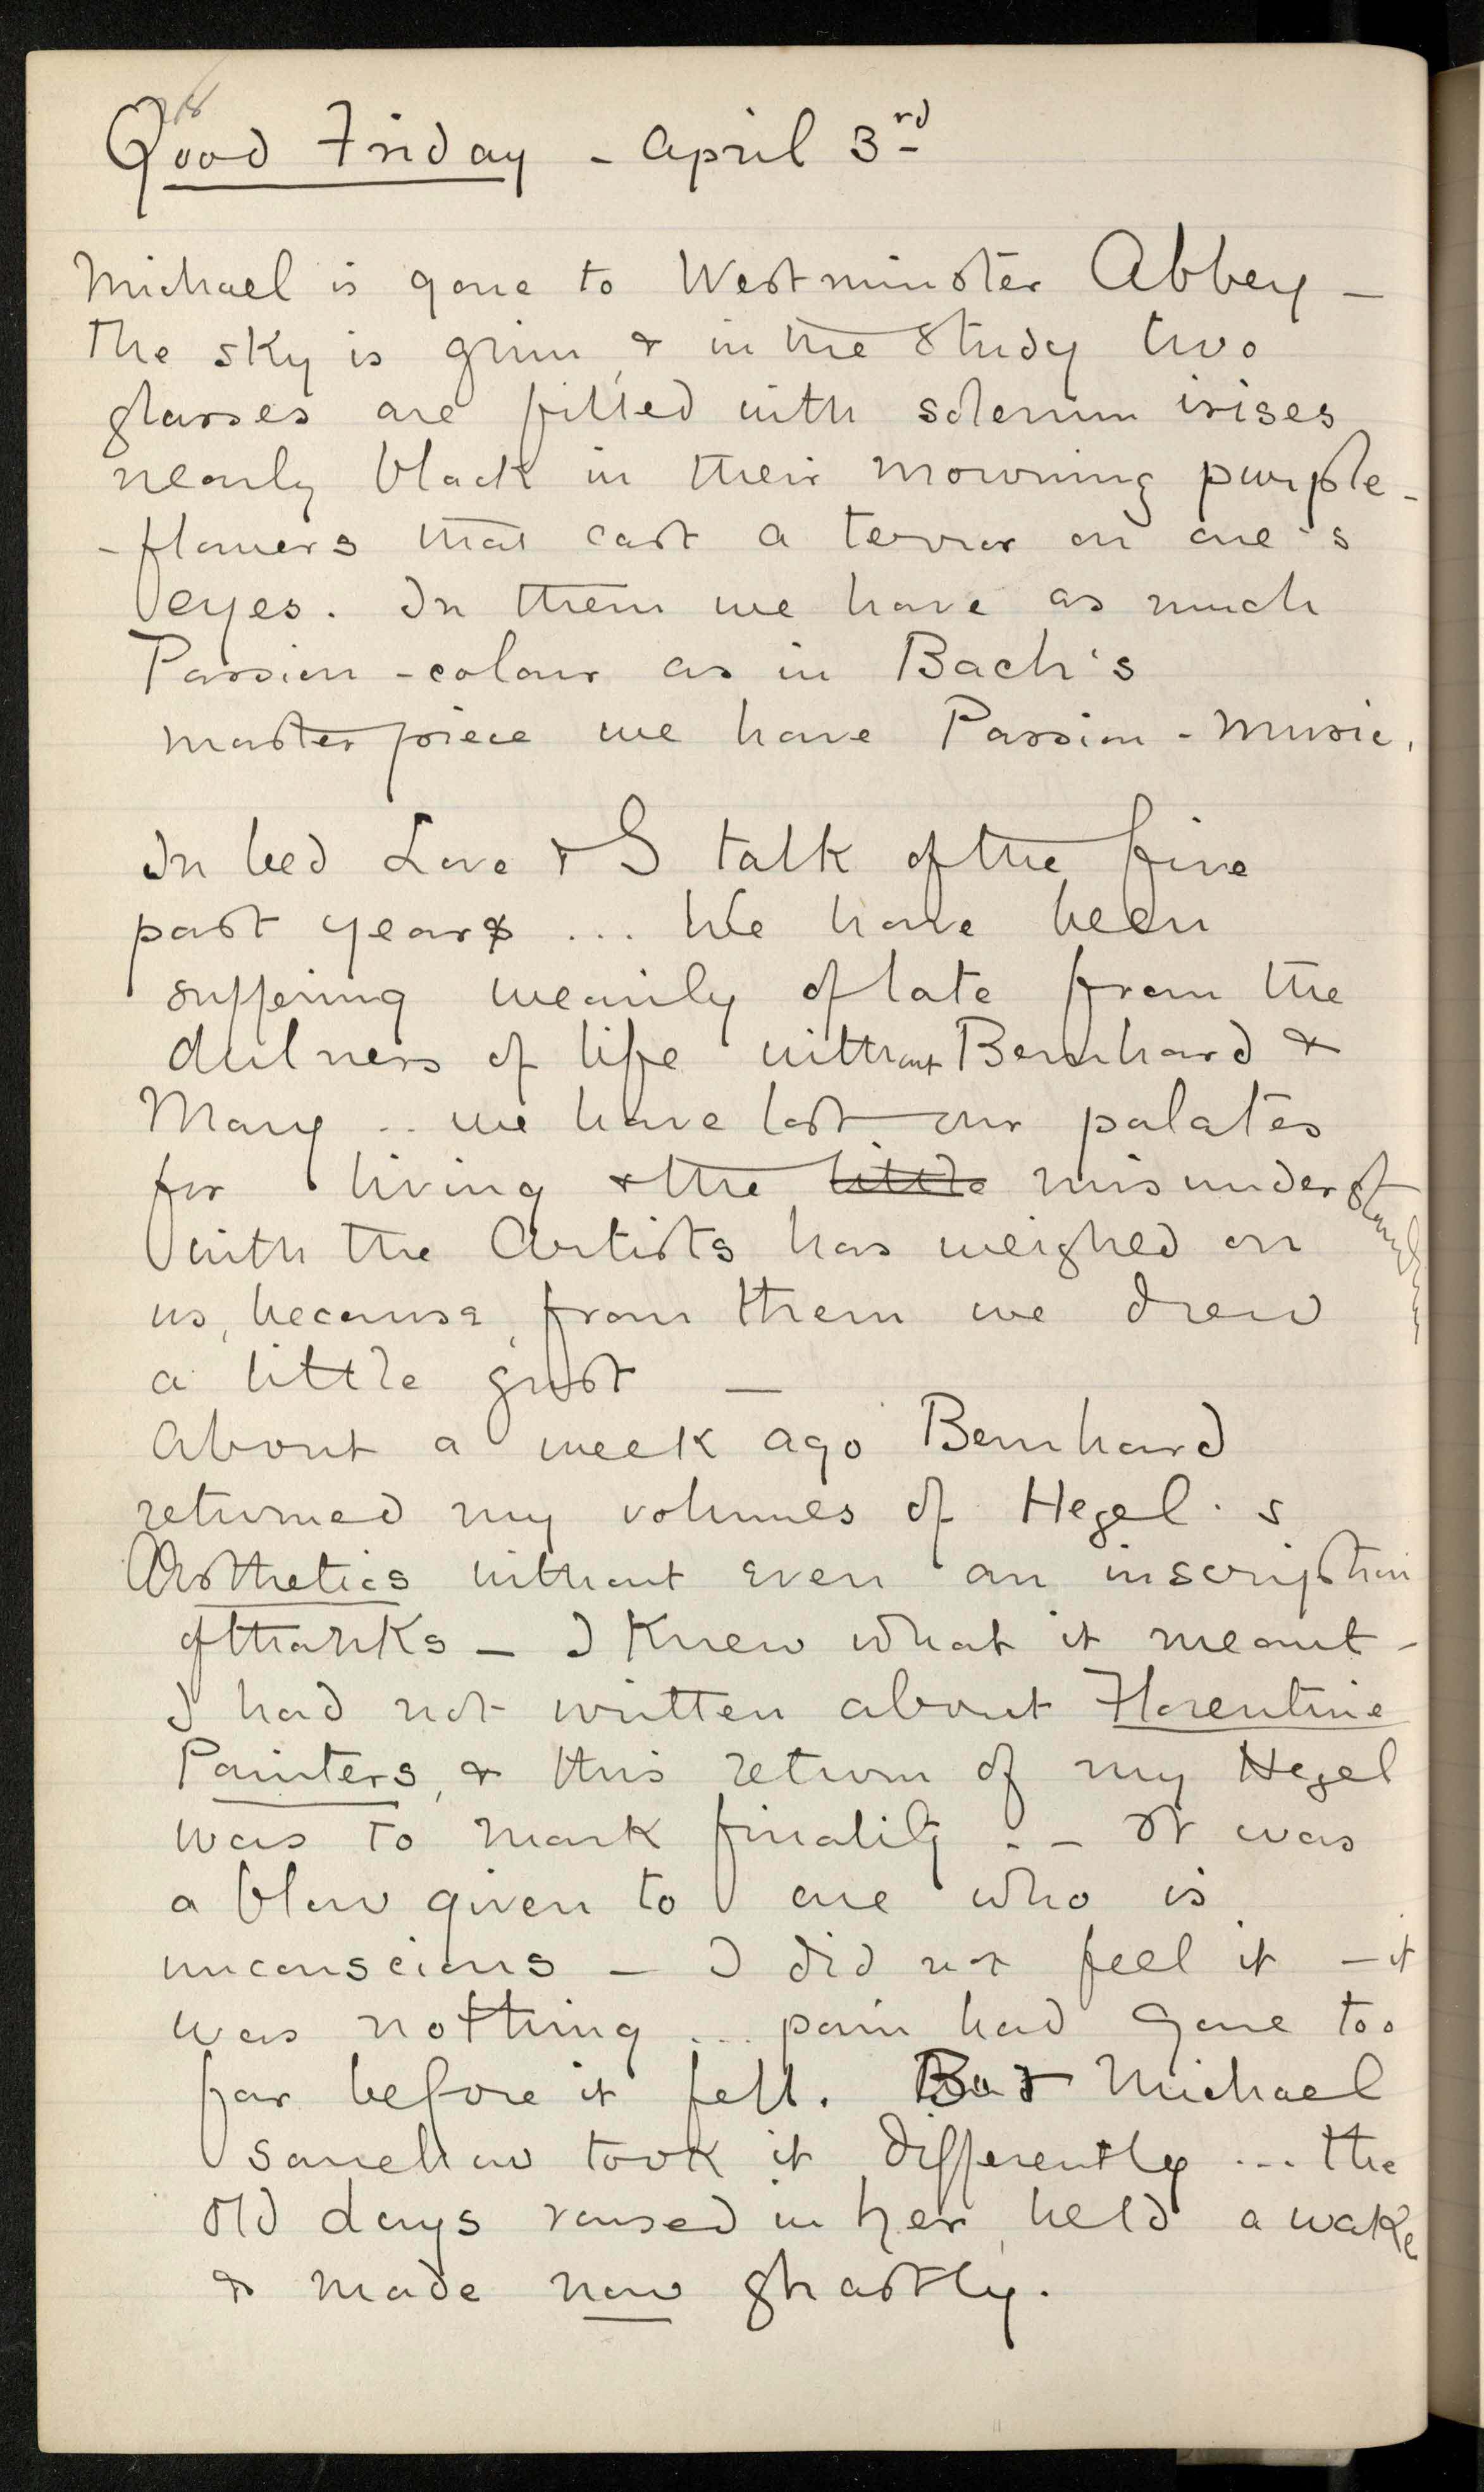 Good Friday - April 3rd
Michael is gone to Westminster Abbey -
The sky is grim, & in the study two
glasses are filled with solemn irises
nearly black in their mourning purple -
- flowers that cast a terror on one's
eyes. In them we have as much
Passion-colour as in Bach's
masterpiece we have Passion-music.
In bed Love & I talk of the five
past years ... We have been
suffering wearily of late from the
dulness of life without Bernhard &
Mary .. we have lost our palates
for living & the little misunderstanding
with the Artists has weighed on
us, because, from them we drew
a little gust —
About a week ago Bernhard
returned my volumes of Hegel's
Aesthetics without even an inscription
of thanks - I knew what it meant -
I had not written about Florentine
Painters, & this return of my Hegel
was to mark finality . - It was
a blow given to one who is
unconscious - I did not feel it - it
was nothing ... pain had gone too
far before it fell. But Michael
somehow took it differently ... the
old days roused in her, held awake
& made now ghastly.